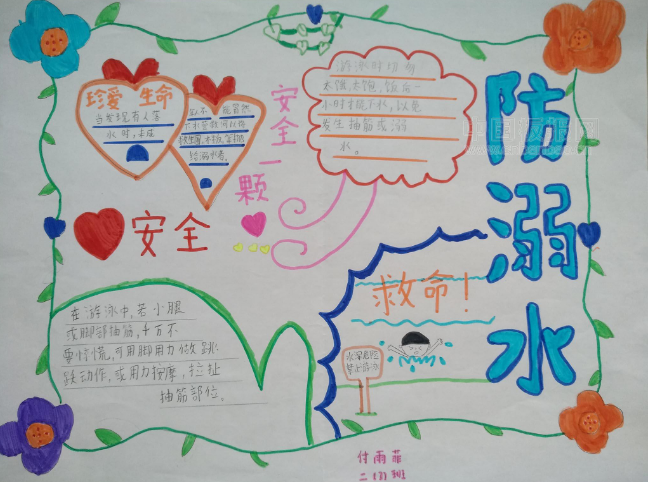 防溺水
珍爱 生命
当发现有人落
水时,
安全一颗
安全
游泳时切勿
太饿、太饱,饭后一
小时才能下水,以免
发生抽筋或溺
水。
救命!
水深危险
禁止游泳
在游泳中,若小腿
或脚部抽筋,千万不
要惊慌,可用脚用力做跳
跃动作,或用力按摩、拉扯
抽筋部位。
付雨菲